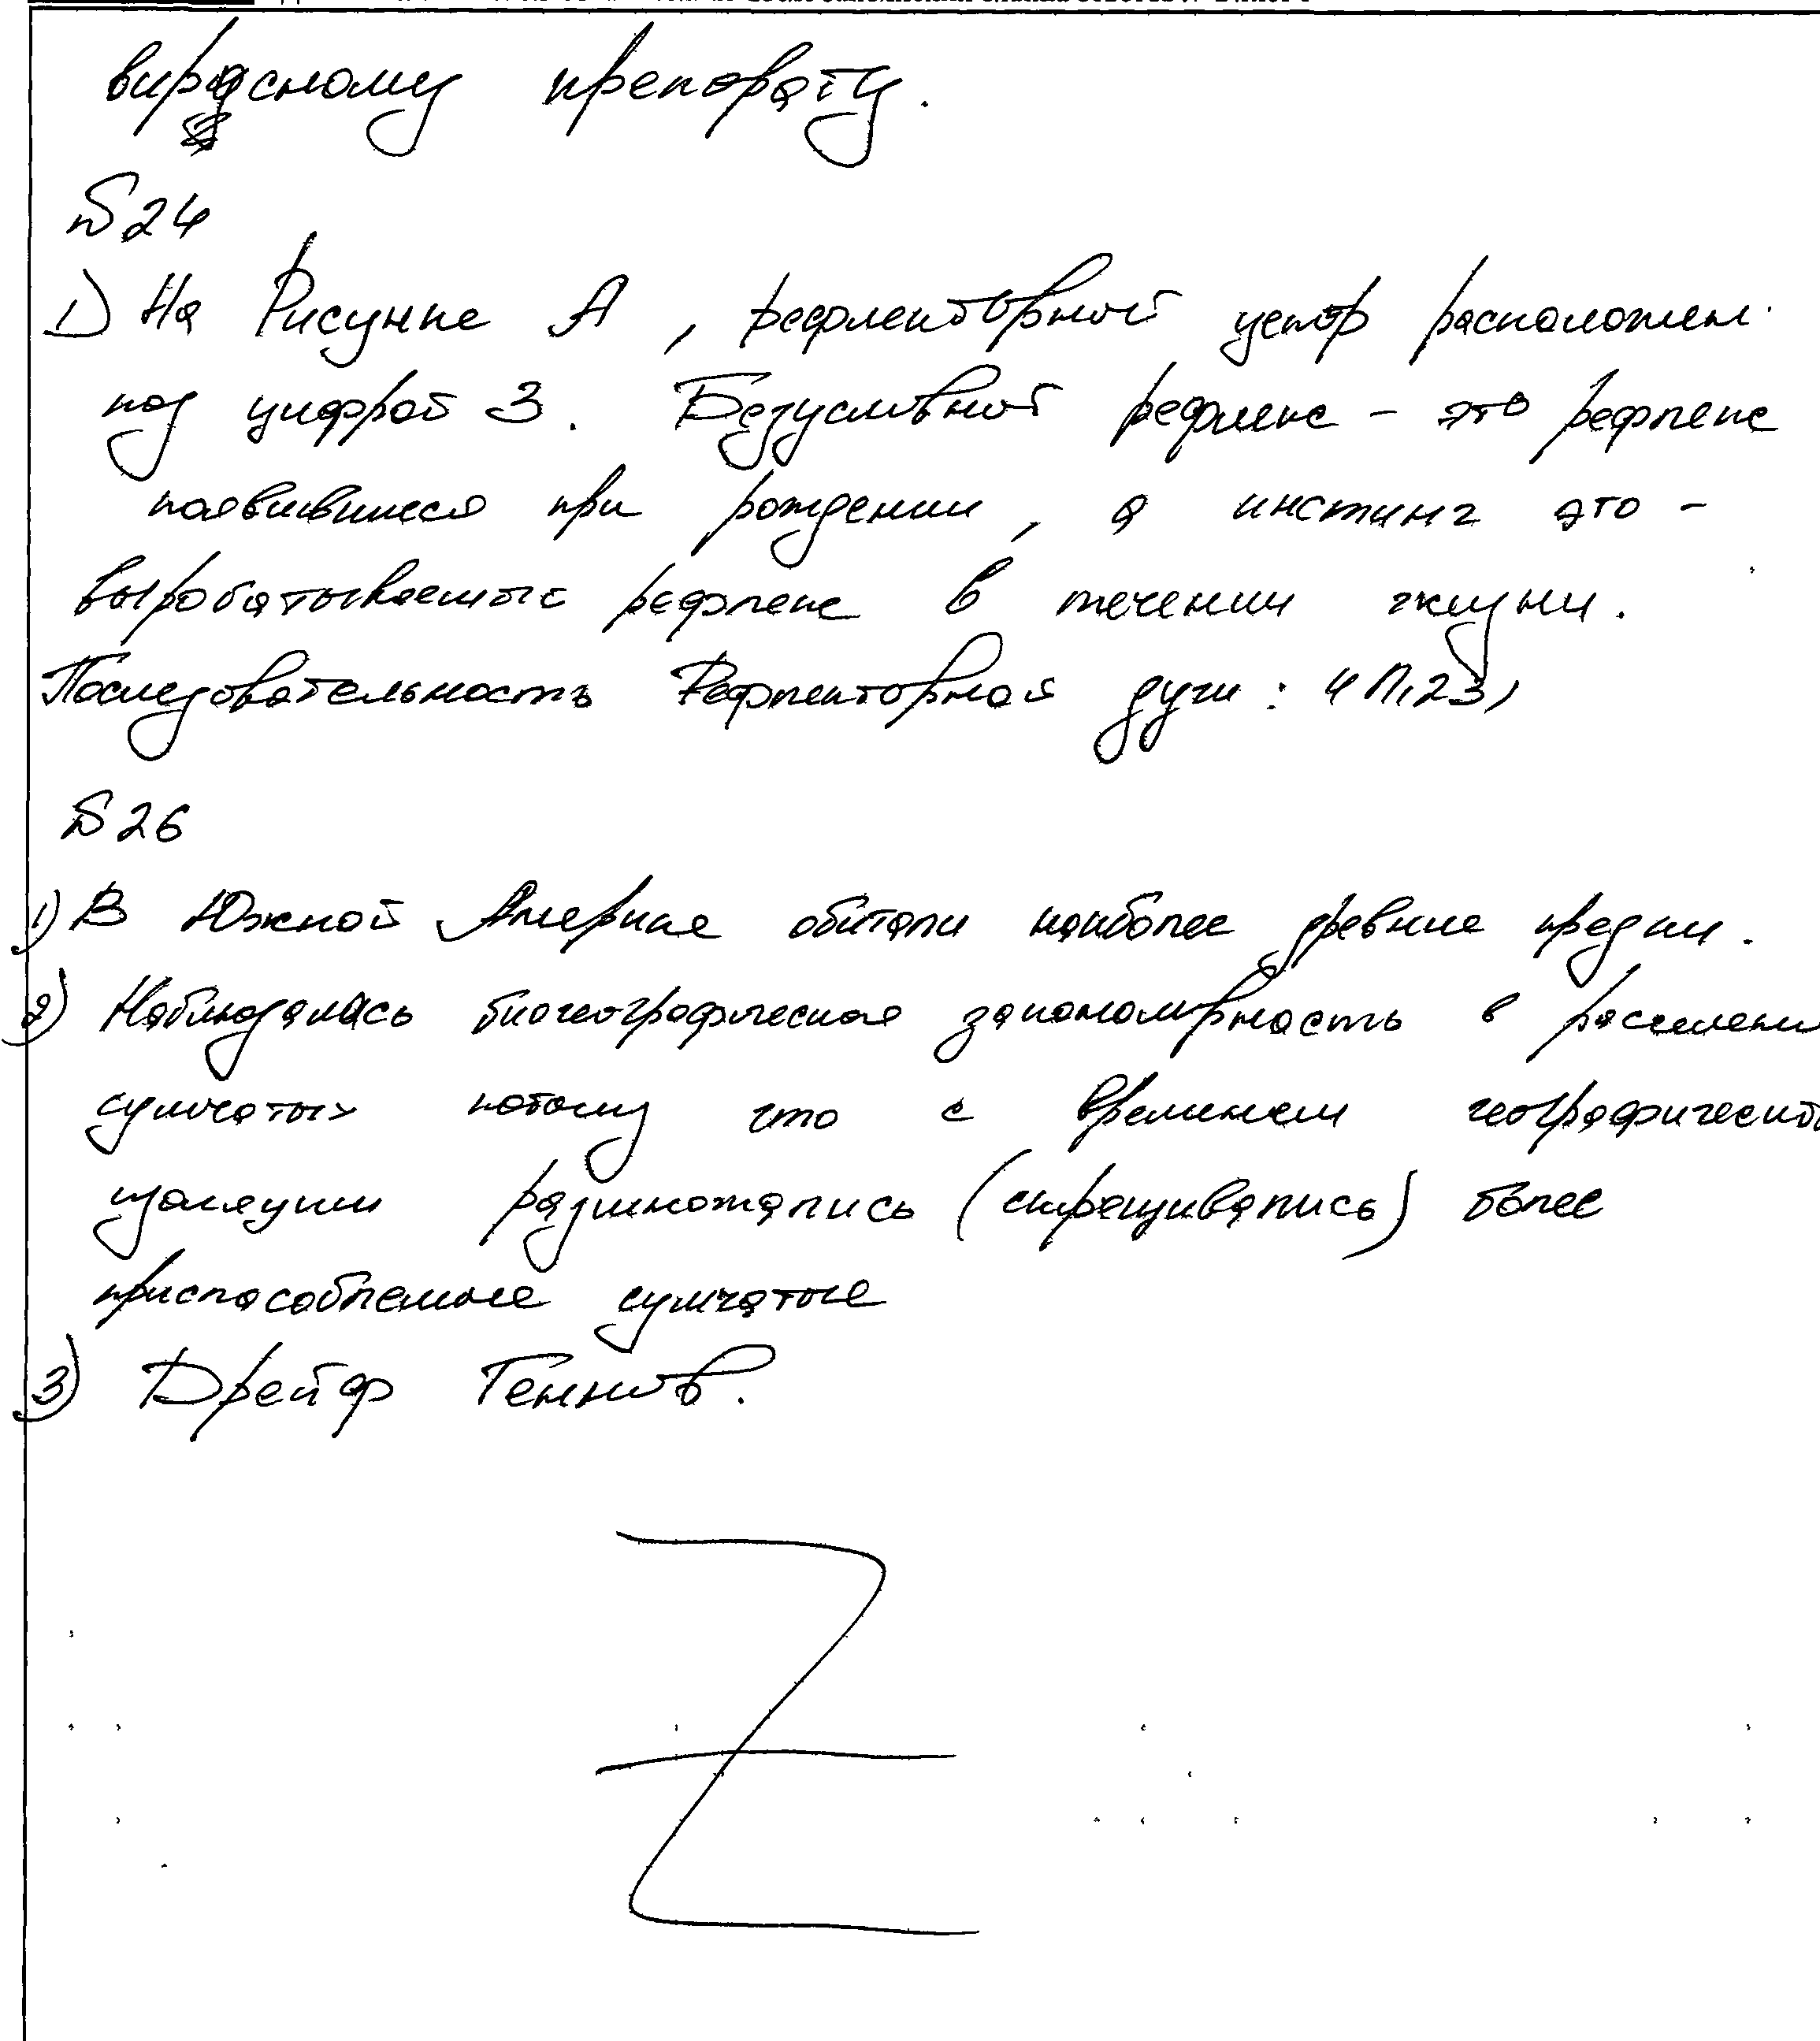 вирусному препорату.
№24
1) На Рисунке А, рефлекторной центр расположен
под цифрой 3. Безусловной рефлекс - это рефлекс
появившиеся при рождении, а инстинг это -
выробатываемые рефлекс в течении жизни.
Последовательность Рефлекторной дуги:
№26
1) В Южной Америке обитали наиболее древние предки.
2) Наблюдалась биогеографическая закономерность в расселени
сумчатых потому что с временем географической
изоляции размножались (скрещивались) более
приспасобленные сумчатые
3) Дрейф Геннов.